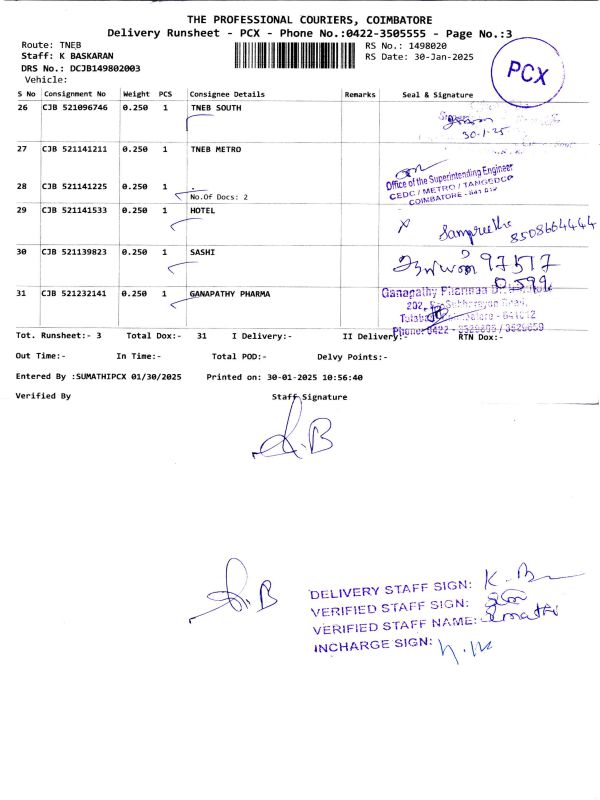 THE PROFESSIONAL COURIERS, COIMBATORE
Delivery Runsheet - PCX - Phone No.:0422-3505555 - Page No.:3
Route: TNEB
Staff: K BASKARAN
DRS No.: DCJB149802003
Vehicle:
RS No.: 1498020
RS Date: 30-Jan-2025
PCX
S No Consignment No Weight PCS Consignee Details Remarks Seal & Signature
26 CJB 521096746 0.250 1 TNEB SOUTH
30-1-25
27 CJB 521141211 0.250 1 TNEB METRO
28 CJB 521141225 0.250 1
No.Of Docs: 2
Office of the Superintending Engineer
CEDC / METRO / TANGEDCO
COIMBATORE - 641 012
29 CJB 521141533 0.250 1 HOTEL
8508664444
30 CJB 521139823 0.250 1 SASHI
97517
31 CJB 521232141 0.250 1 GANAPATHY PHARMA
Ganapathy Pharmaa
Tot. Runsheet:- 3 Total Dox:- 31 I Delivery:- II Delivery:- RTN Dox:-
Out Time:- In Time:- Total POD:- Delvy Points:-
Entered By :SUMATHIPCX 01/30/2025 Printed on: 30-01-2025 10:56:40
Verified By Staff Signature
DELIVERY STAFF SIGN: K. B
VERIFIED STAFF SIGN:
VERIFIED STAFF NAME:
INCHARGE SIGN: